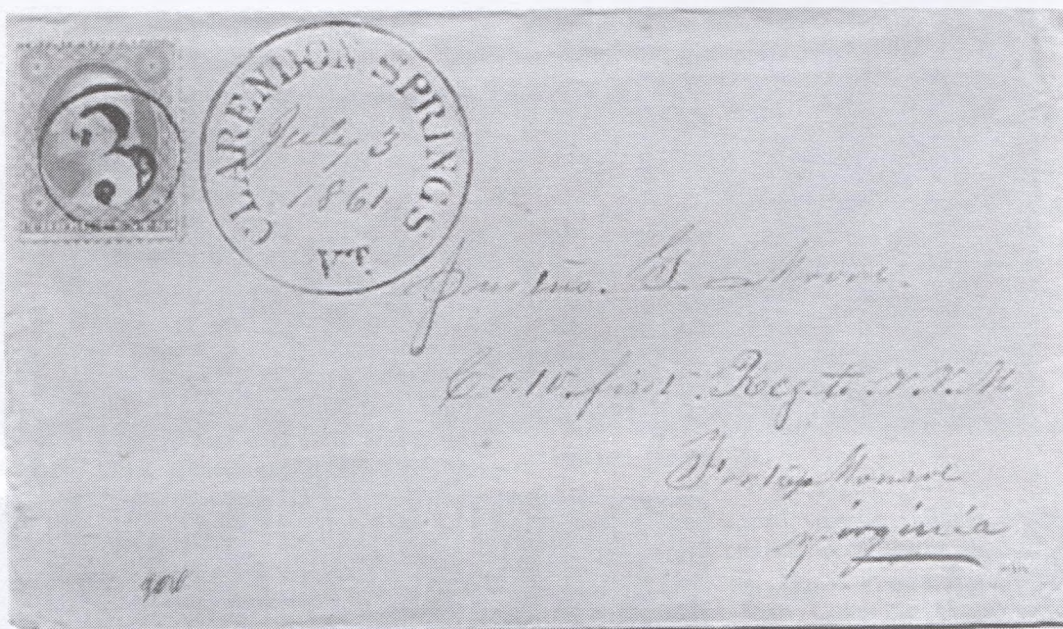 3
CLARENDON SPRINGS
July 3
1861
VT
Justus. G. Moore.
first Regt. V.V.M
Monroe
Virginia